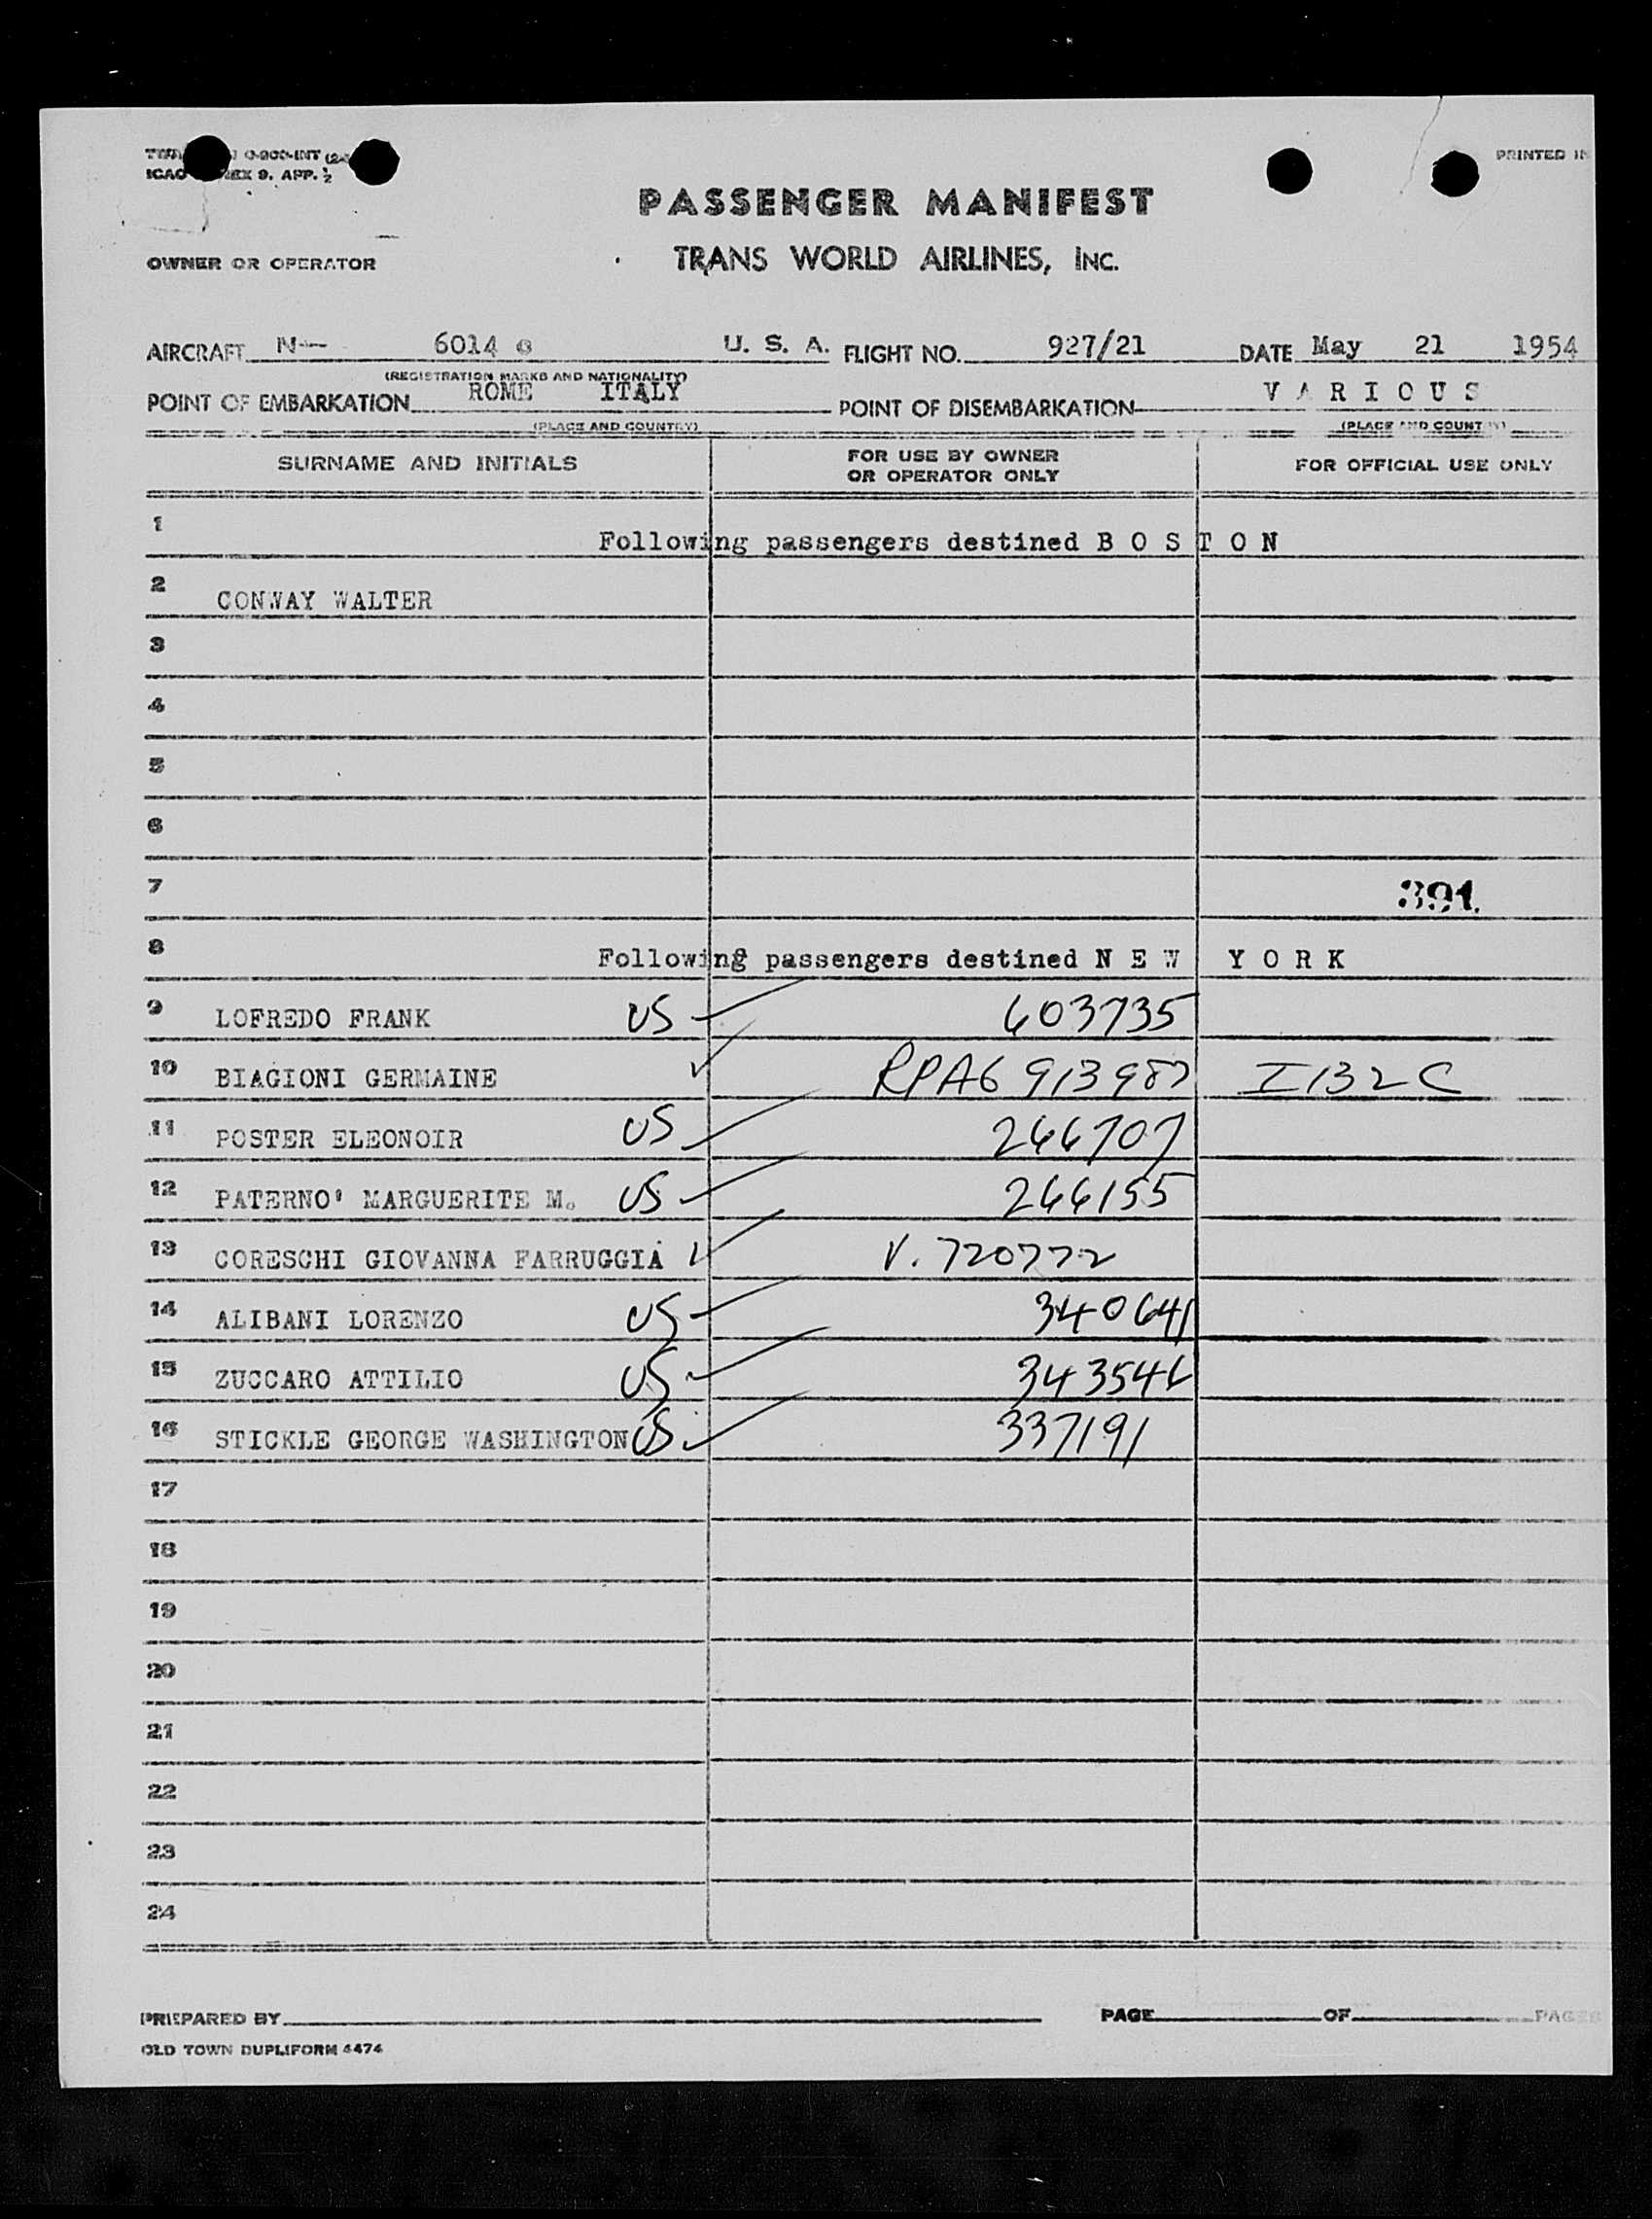 ICAO EX 9. APP. ½
PRINTED IN
PASSENGER MANIFEST
OWNER OR OPERATOR
TRANS WORLD AIRLINES, INC.
AIRCRAFT N-- 6014 U. S. A. FLIGHT NO. 927/21 DATE May 21 1954
(REGISTRATION MARKS AND NATIONALITY)
POINT OF EMBARKATION ROME ITALY POINT OF DISEMBARKATION V A R I O U S
(PLACE AND COUNTRY) (PLACE AND COUNTRY)
SURNAME AND INITIALS FOR USE BY OWNER OR OPERATOR ONLY FOR OFFICIAL USE ONLY
1 Following passengers destined B O S T O N
2 CONWAY WALTER
3
4
5
6
7 391
8 Following passengers destined N E W Y O R K
9 LOFREDO FRANK US 603735
10 BIAGIONI GERMAINE ✓ RPA6 913987 I132C
11 POSTER ELEONOIR US 266707
12 PATERNO' MARGUERITE M. US 266155
13 CORESCHI GIOVANNA FARRUGGIA ✓ V. 720772
14 ALIBANI LORENZO US 340641
15 ZUCCARO ATTILIO US 343546
16 STICKLE GEORGE WASHINGTON US 337191
17
18
19
20
21
22
23
24
PREPARED BY PAGE OF PAGES
OLD TOWN DUPLIFORM 4474